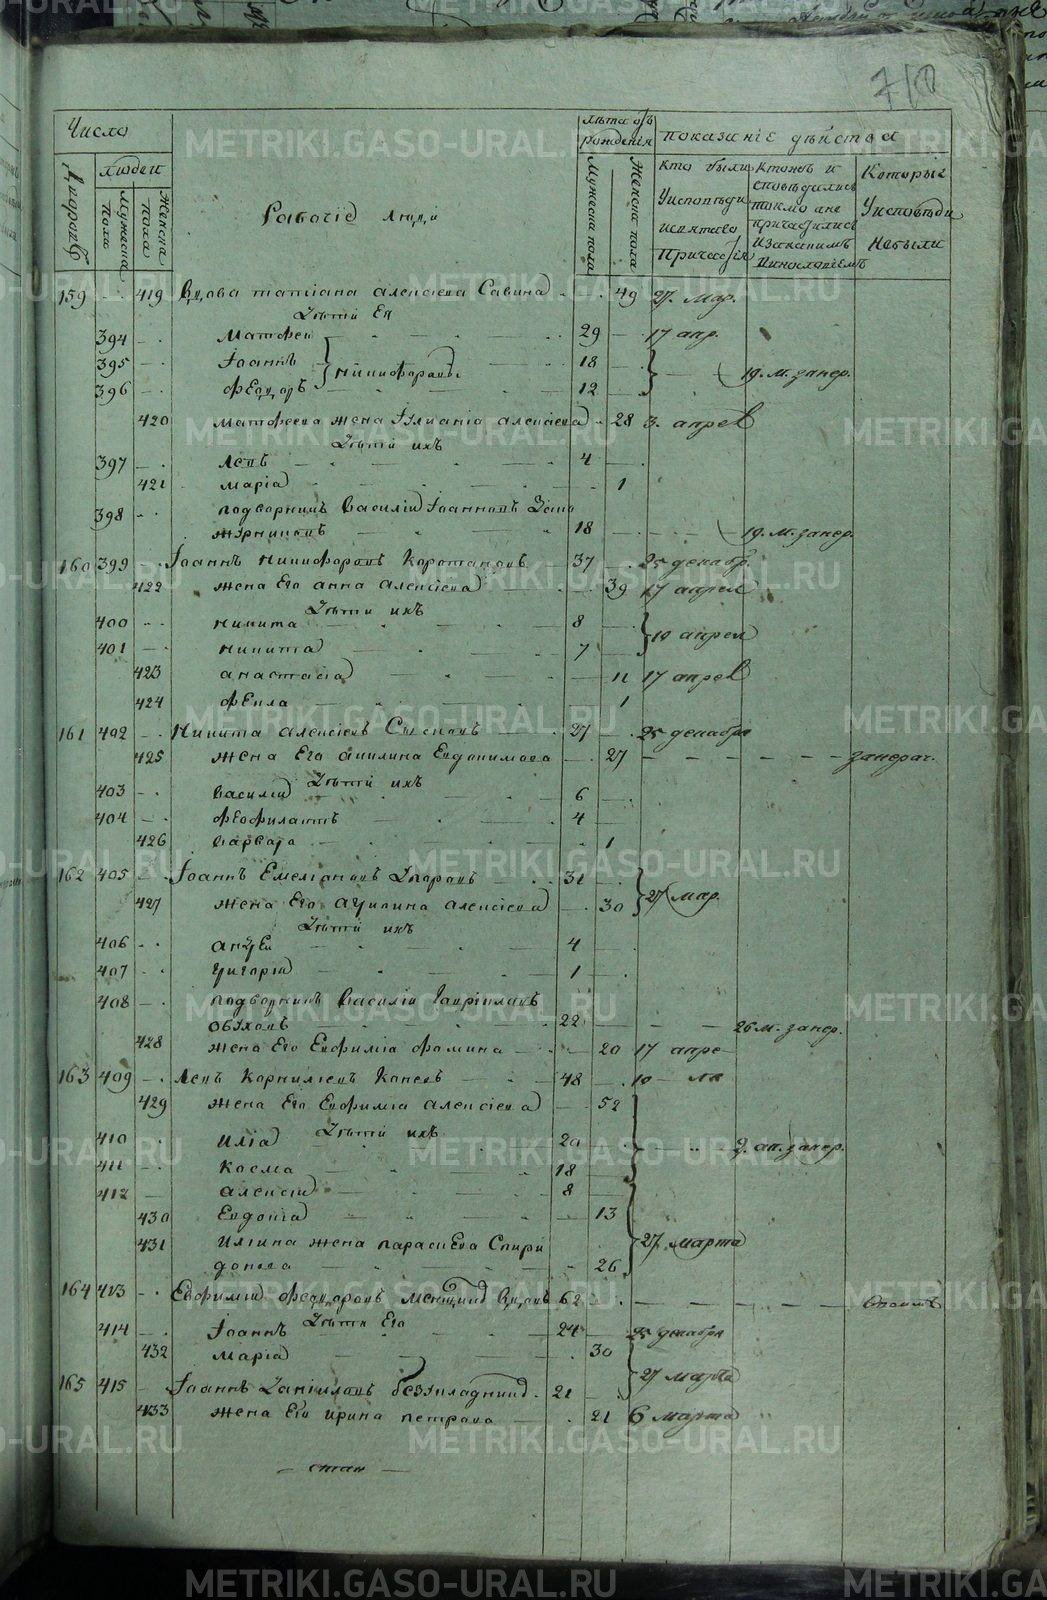 Число
лѣта отъ рожденія
показаніе дѣйства
Дворовъ
людей
Мужеска пола
Женска пола
Рабочіе Люди
Мужеска пола
Женска пола
кто были
Уисповѣди
исвятаго
Причастія
Ктоже и
сповѣдались
токмо ане
причастились
изакакимъ
винословіемъ
Которые
Уисповѣди
Небыли
159 419 Вдова татіана алексіева Савина 49 27. Мар.
Дѣти Ея
394 Матфеи 29 17 апр.
395 Іоаннъ Никифоровы 18 19. м. занер.
396 Феодоръ 12
420 матфеева жена Іуліанія алексіева 28 3. апрел
Дѣти ихъ
397 Левъ 4
421 марія 1
398 подворникъ Василій Іоанновъ
18 19. м. занер.
160 399 Іоаннъ Никифоровъ 37 25 декабр.
422 жена Его анна алексіева 39 17 апрел
Дѣти ихъ
400 никита 8 10 апрел
401 никита 7
423 анастасія 11 17 апрел
424 фекла 1
161 402 Никита алексіевъ 27 25 декабря
425 жена Его акилина Евдокимова 27 занерач.
Дѣти ихъ
403 Василій 6
404 феофилактъ 4
426 варвара 1
162 405 Іоаннъ Емеліановъ 31 27 мар.
427 жена Его акилина алексіева 30
Дѣти ихъ
406 андреи 4
407 григорій 1
408 подворникъ Василій Гавріиловъ
обуховъ 22 26 м. занер.
428 жена Его Евфимія фомина 20 17 апре
163 409 Левъ Корниліевъ 48 10 ля
429 жена Его Евфимія алексіева 52
Дѣти ихъ
410 Илія 20 9. ап. занер.
411 косма 18
412 алексій 8
430 Евдокія 13
431 Иліина жена параскева Спири
донова 26 27. марта
164 413 Евфимій феодоровъ вдовъ 62
Дѣти Его
414 Іоаннъ 24 25 декабря
432 Марія 30
27 марта
165 415 Іоаннъ Даніиловъ безукладный 21
433 жена Его ирина петрова 21 6 марта
METRIKI.GASO-URAL.RU